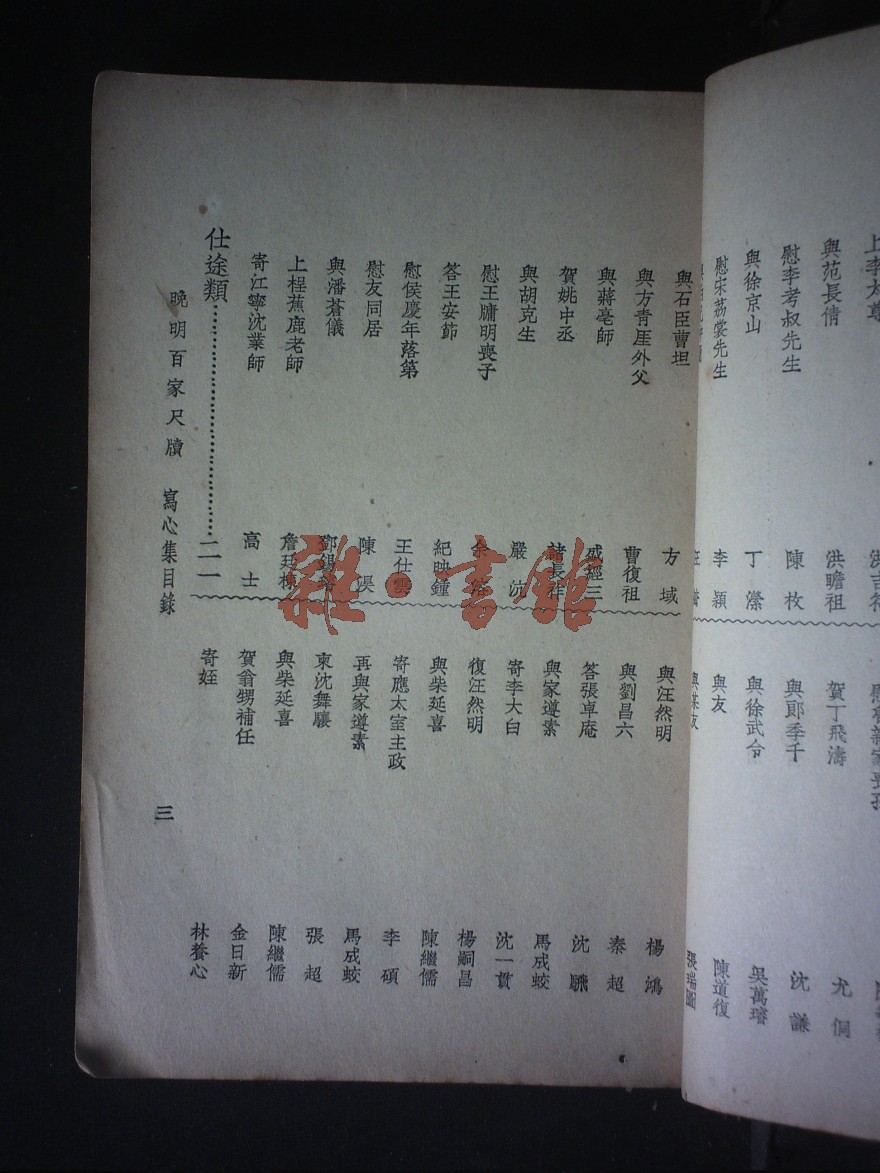 與范長倩 洪瞻祖
慰李考叔先生 陳枚
與徐京山 丁瀠
慰宋荔裳先生 李穎
賀丁飛濤 尤侗
與郎季千 沈謙
與徐武令 吳萬璿
與友 陳道復
與某友 張瑞圖
與石臣曹坦 方域
與方青厓外父 曹復祖
與蔣亳師 盛經三
賀姚中丞 諸長祚
與胡克生 嚴沆
慰王牗明喪子
答王安節 紀映鐘
慰侯慶年落第 王仕雲
慰友同居 陳淏
與潘蒼儀
上桯蕉鹿老師 詹廷棟
寄江寧沈業師 高士
仕途類 二一
與汪然明 楊鴻
與劉昌六 秦超
答張卓庵 沈颺
與家遵素 馬成蛟
寄李大白 沈一貫
復汪然明 楊嗣昌
與柴延喜 陳繼儒
寄應太室主政 李碩
再與家遵素 馬成蛟
柬沈舞驤 張超
與柴延喜 陳繼儒
賀翁甥補任 金日新
寄姪 林養心
晚明百家尺牘 寫心集目錄
三
雜·書館